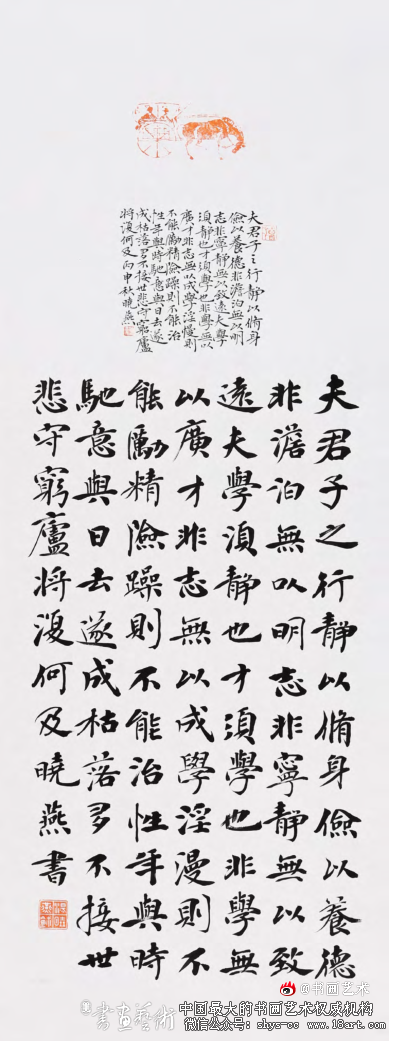 夫君子之行静以脩身
儉以養德非澹泊無以明
志非寧静無以致遠夫學
須静也才須學也非學無以
廣才非志無以成學淫慢則
不能勵精險躁則不能治
性年與時馳意與日去遂
成枯落多不接世悲守窮廬
將復何及丙申秋曉燕
夫君子之行静以脩身儉以養德
非澹泊無以明志非寧静無以致
遠夫學須静也才須學也非學無
以廣才非志無以成學淫漫則不
能勵精險躁則不能治性年與時
馳意與日去遂成枯落多不接世
悲守窮廬将復何及曉燕書
@书画艺术
書畫藝術 中国最大的书画艺术权威机构
微信公众号：shys-cc www.18art.com